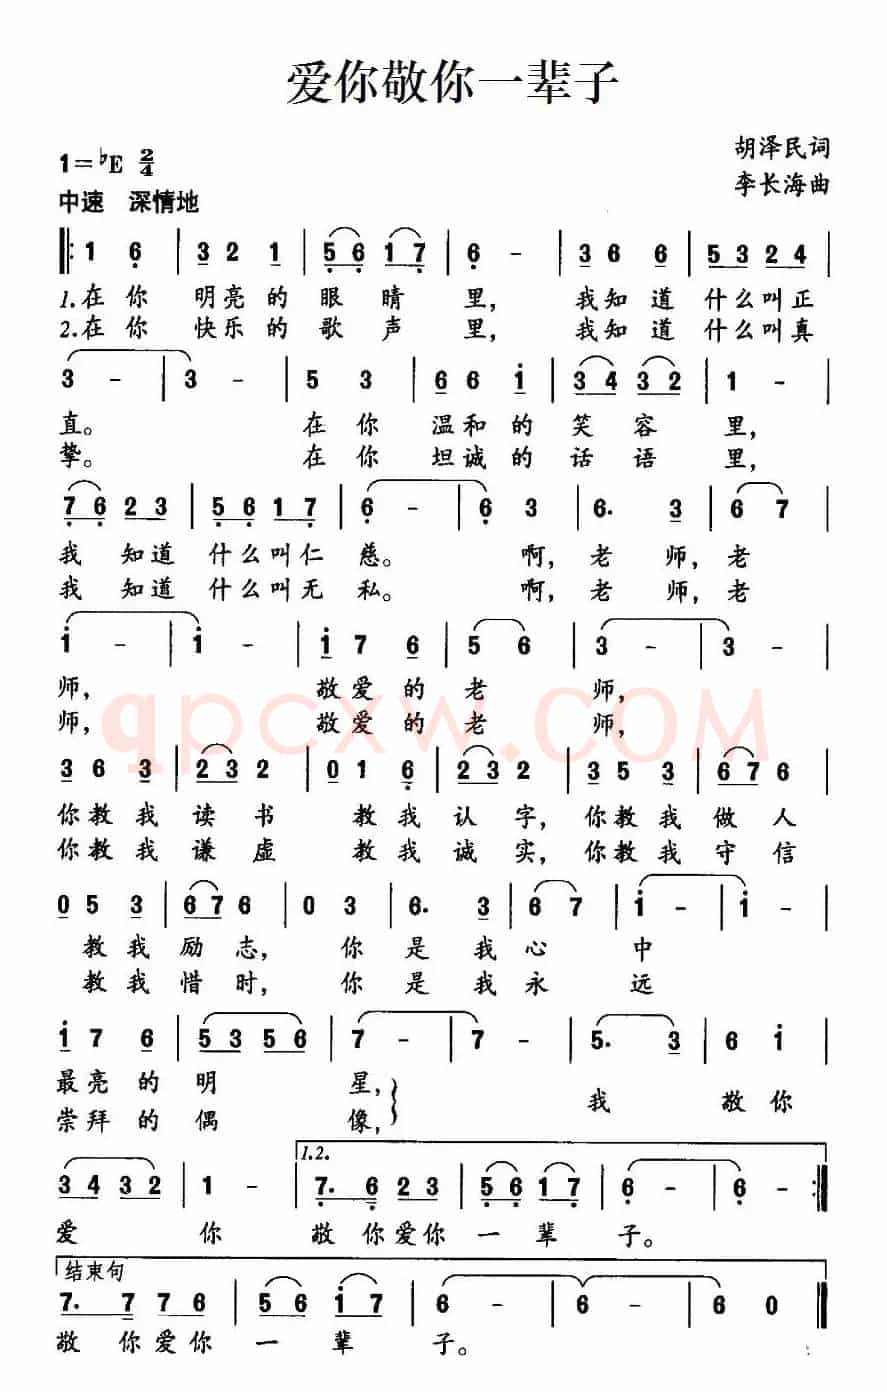 爱你敬你一辈子
胡泽民词
1=♭E 2/4
李长海曲
中速 深情地
‖: 1 6̣ | 3 2 1 | 5̣ 6̣ 1 7̣ | 6̣ - | 3 6 6 | 5 3 2 4 |
1.在你 明亮的 眼睛 里, 我知道 什么叫正
2.在你 快乐的 歌声 里, 我知道 什么叫真
3 - | 3 - | 5 3 | 6 6 i | 3 4 3 2 | 1 - |
直。 在你 温和的 笑容 里,
挚。 在你 坦诚的 话语 里,
7̣ 6̣ 2 3 | 5̣ 6̣ 1 7̣ | 6̣ - | 6̣ 3 | 6. 3 | 6 7 |
我 知道 什么叫仁 慈。 啊, 老 师, 老
我 知道 什么叫无 私。 啊, 老 师, 老
i - | i - | i 7 6 | 5 6 | 3 - | 3 - |
师, 敬爱的 老 师,
师, 敬爱的 老 师,
qpcxw.COM
3 6 3 | 2 3 2 | 0 1 6̣ | 2 3 2 | 3 5 3 | 6 7 6 |
你教我 读书 教我 认字, 你教我 做人
你教我 谦虚 教我 诚实, 你教我 守信
0 5 3 | 6 7 6 | 0 3 | 6. 3 | 6 7 | i - | i - |
教我 励志, 你 是 我 心 中
教我 惜时, 你 是 我 永 远
i 7 6 | 5 3 5 6 | 7 - | 7 - | 5. 3 | 6 i |
最亮的 明 星,
我 敬你
崇拜的 偶 像,
1.2.
3 4 3 2 | 1 - | 7̣. 6̣ 2 3 | 5̣ 6̣ 1 7̣ | 6̣ - | 6̣ - :‖
爱 你 敬你爱你 一 辈 子。
结束句
7. 7 7 6 | 5 6 i 7 | 6 - | 6 - | 6 0 ‖
敬 你爱你 一 辈 子。